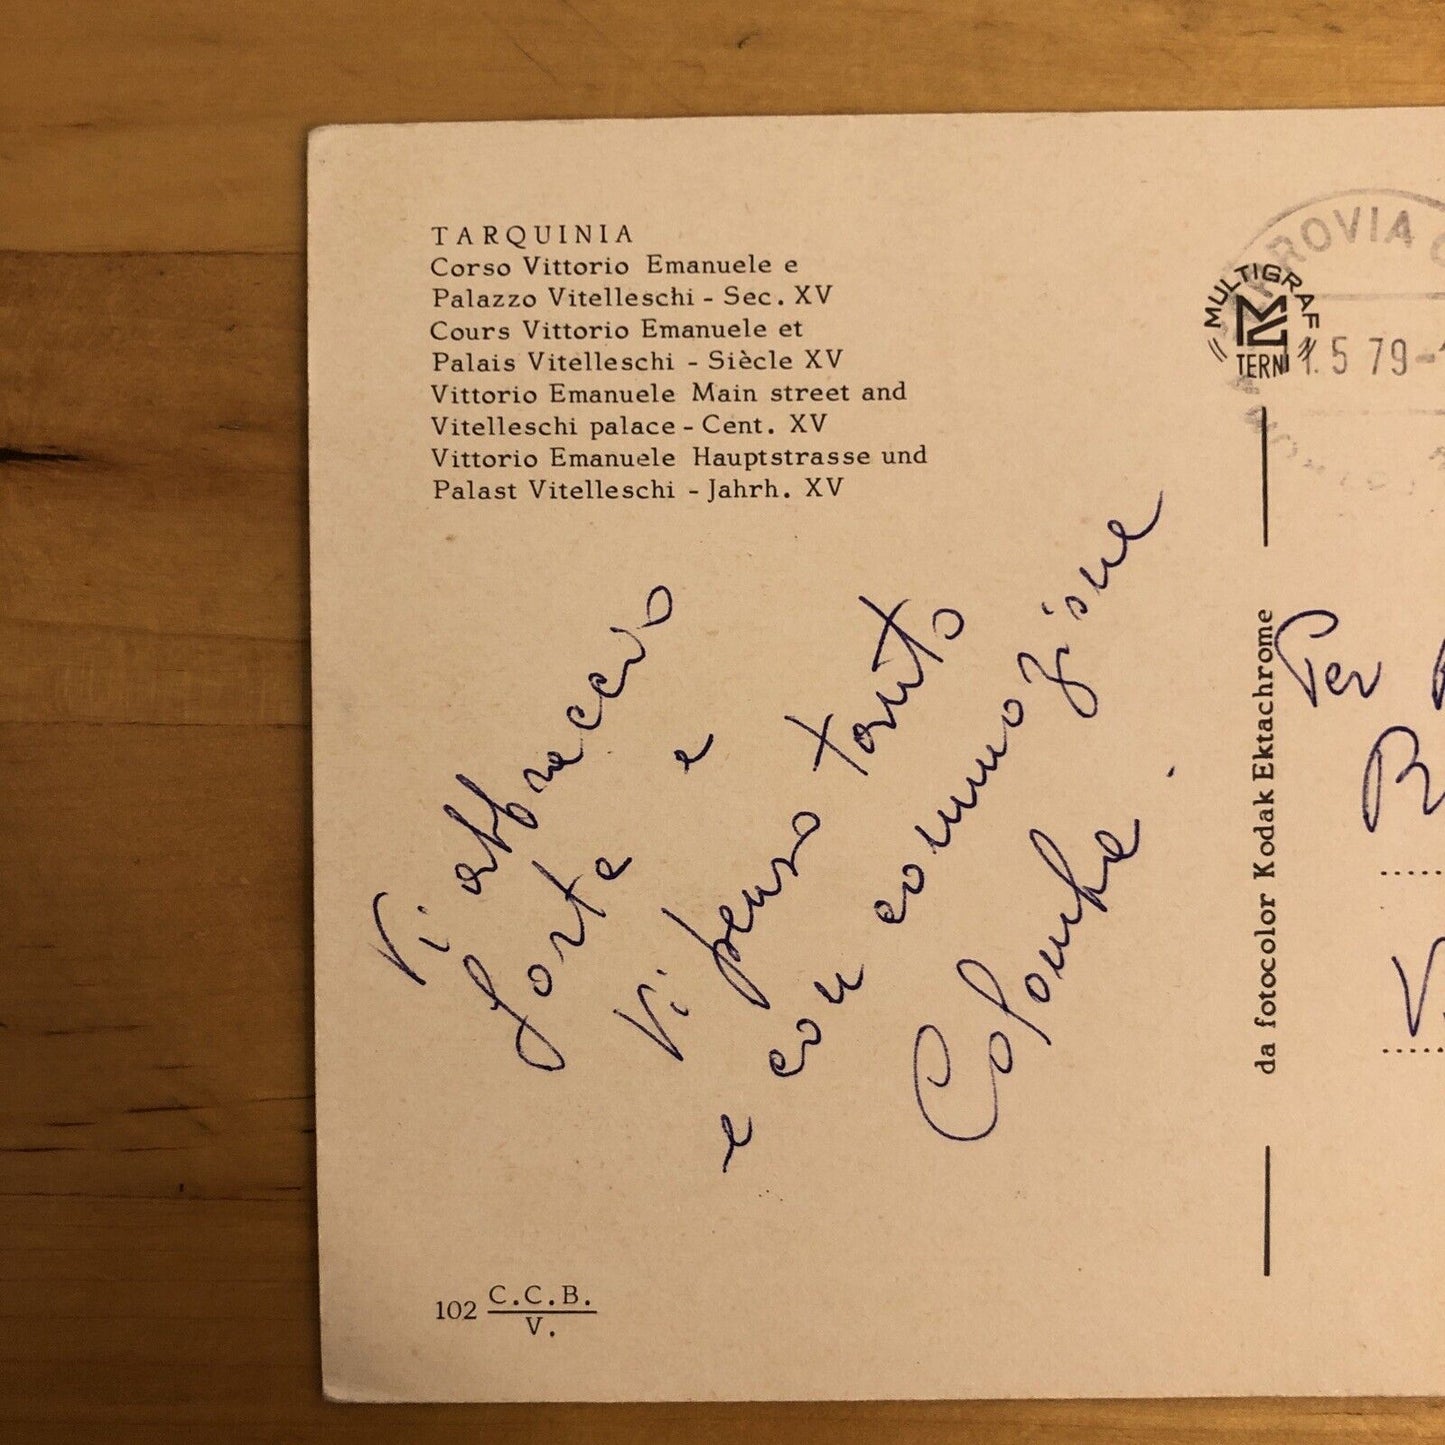 TARQUINIA
Corso Vittorio Emanuele e
Palazzo Vitelleschi - Sec. XV
Cours Vittorio Emanuele et
Palais Vitelleschi - Siècle XV
Vittorio Emanuele Main street and
Vitelleschi palace - Cent. XV
Vittorio Emanuele Hauptstrasse und
Palast Vitelleschi - Jahrh. XV
MULTIGRAF
TERNI
1.5 79-
Vi abbraccio
forte e
Vi penso tanto
e con commozione
Colomba.
da fotocolor Kodak Ektachrome
Per
102 C.C.B.
V.